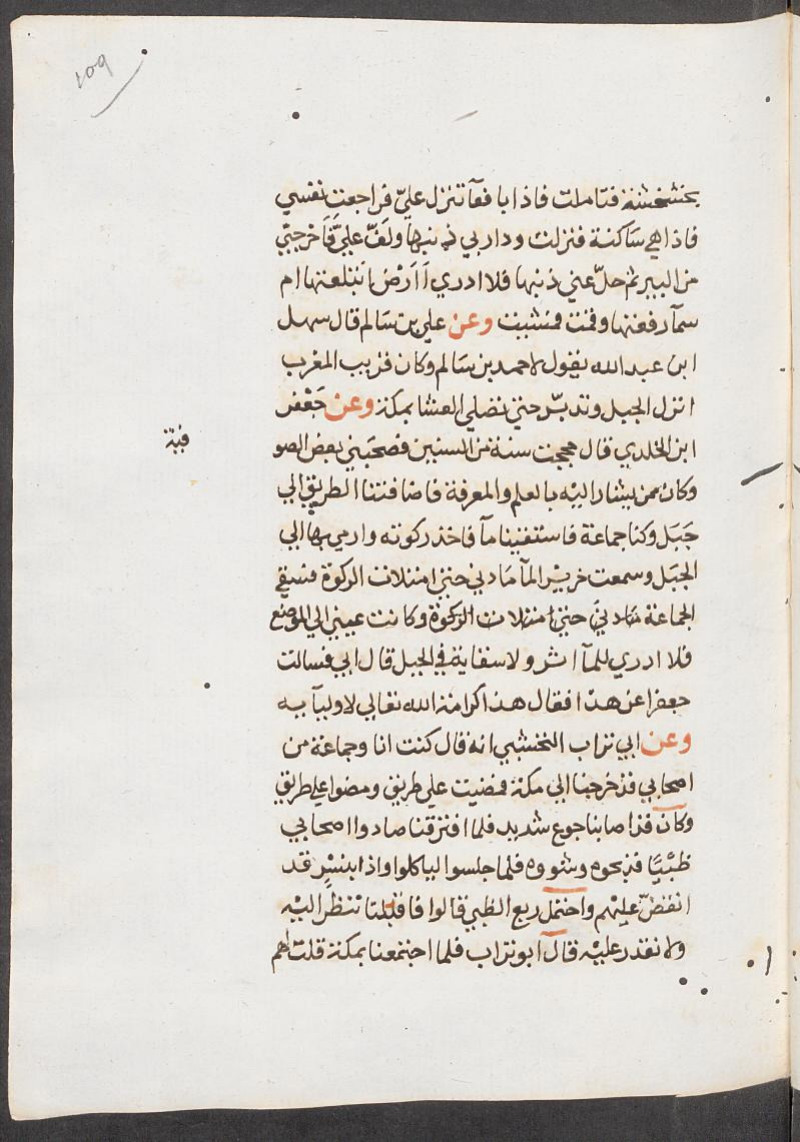 109
بخشخشة فتاملت فاذا بافعآ تنزل عليّ فراجعت نفسي
فاذا هي ساكنة فنزلت ودار بي ذنبها ولفّ عليّ فاخرجتني
من البير ثم حلّ عني ذنبها فلا ادري أأرض ابتلعتها ام
سمآ رفعتها وقمت فمشيت وعن علي بن سالم قال سهل
ابن عبد الله يقول لاحمد بن سالم وكان قريب المغرب
انزل الجبل وتدبّر حتي نصلي العشا بمكة وعن جعفر
ابن الخلدي قال حججت سنة من السنين فصحبني بعض الصو
فية
وكان ممن يشار اليه بالعلم والمعرفة فاضافتنا الطريق الي
جبل وكنا جماعة فاستقينا مآ فاخذ ركوته وارمي بها الي
الجبل وسمعت خرير المآ حتي امتلات الركوة فسقي
الجماعة حتي امتلات الركوة وكانت عيني الي الموضع
فلا ادري للمآ اثر ولا سقاية في الجبل قال ابي فسالت
جعفرا عن هذا فقال هذا كرامة الله تعالي لاوليآيه
وعن ابي تراب النخشبي انه قال كنت انا وجماعة من
اصحابي قد خرجنا الي مكة فمضيت علي طريق ومضوا علي طريق
وكان قد اصابنا جوع شديد فلما افترقنا صادوا اصحابي
ظبيًا فذبحوه وشووه فلما جلسوا لياكلوا واذا بنسر قد
انقضّ عليهم واحتمل ربع الظبي قالوا فاقبلنا ننظر اليه
ولا نقدر عليه قال ابو تراب فلما اجتمعنا بمكة قلت لهم